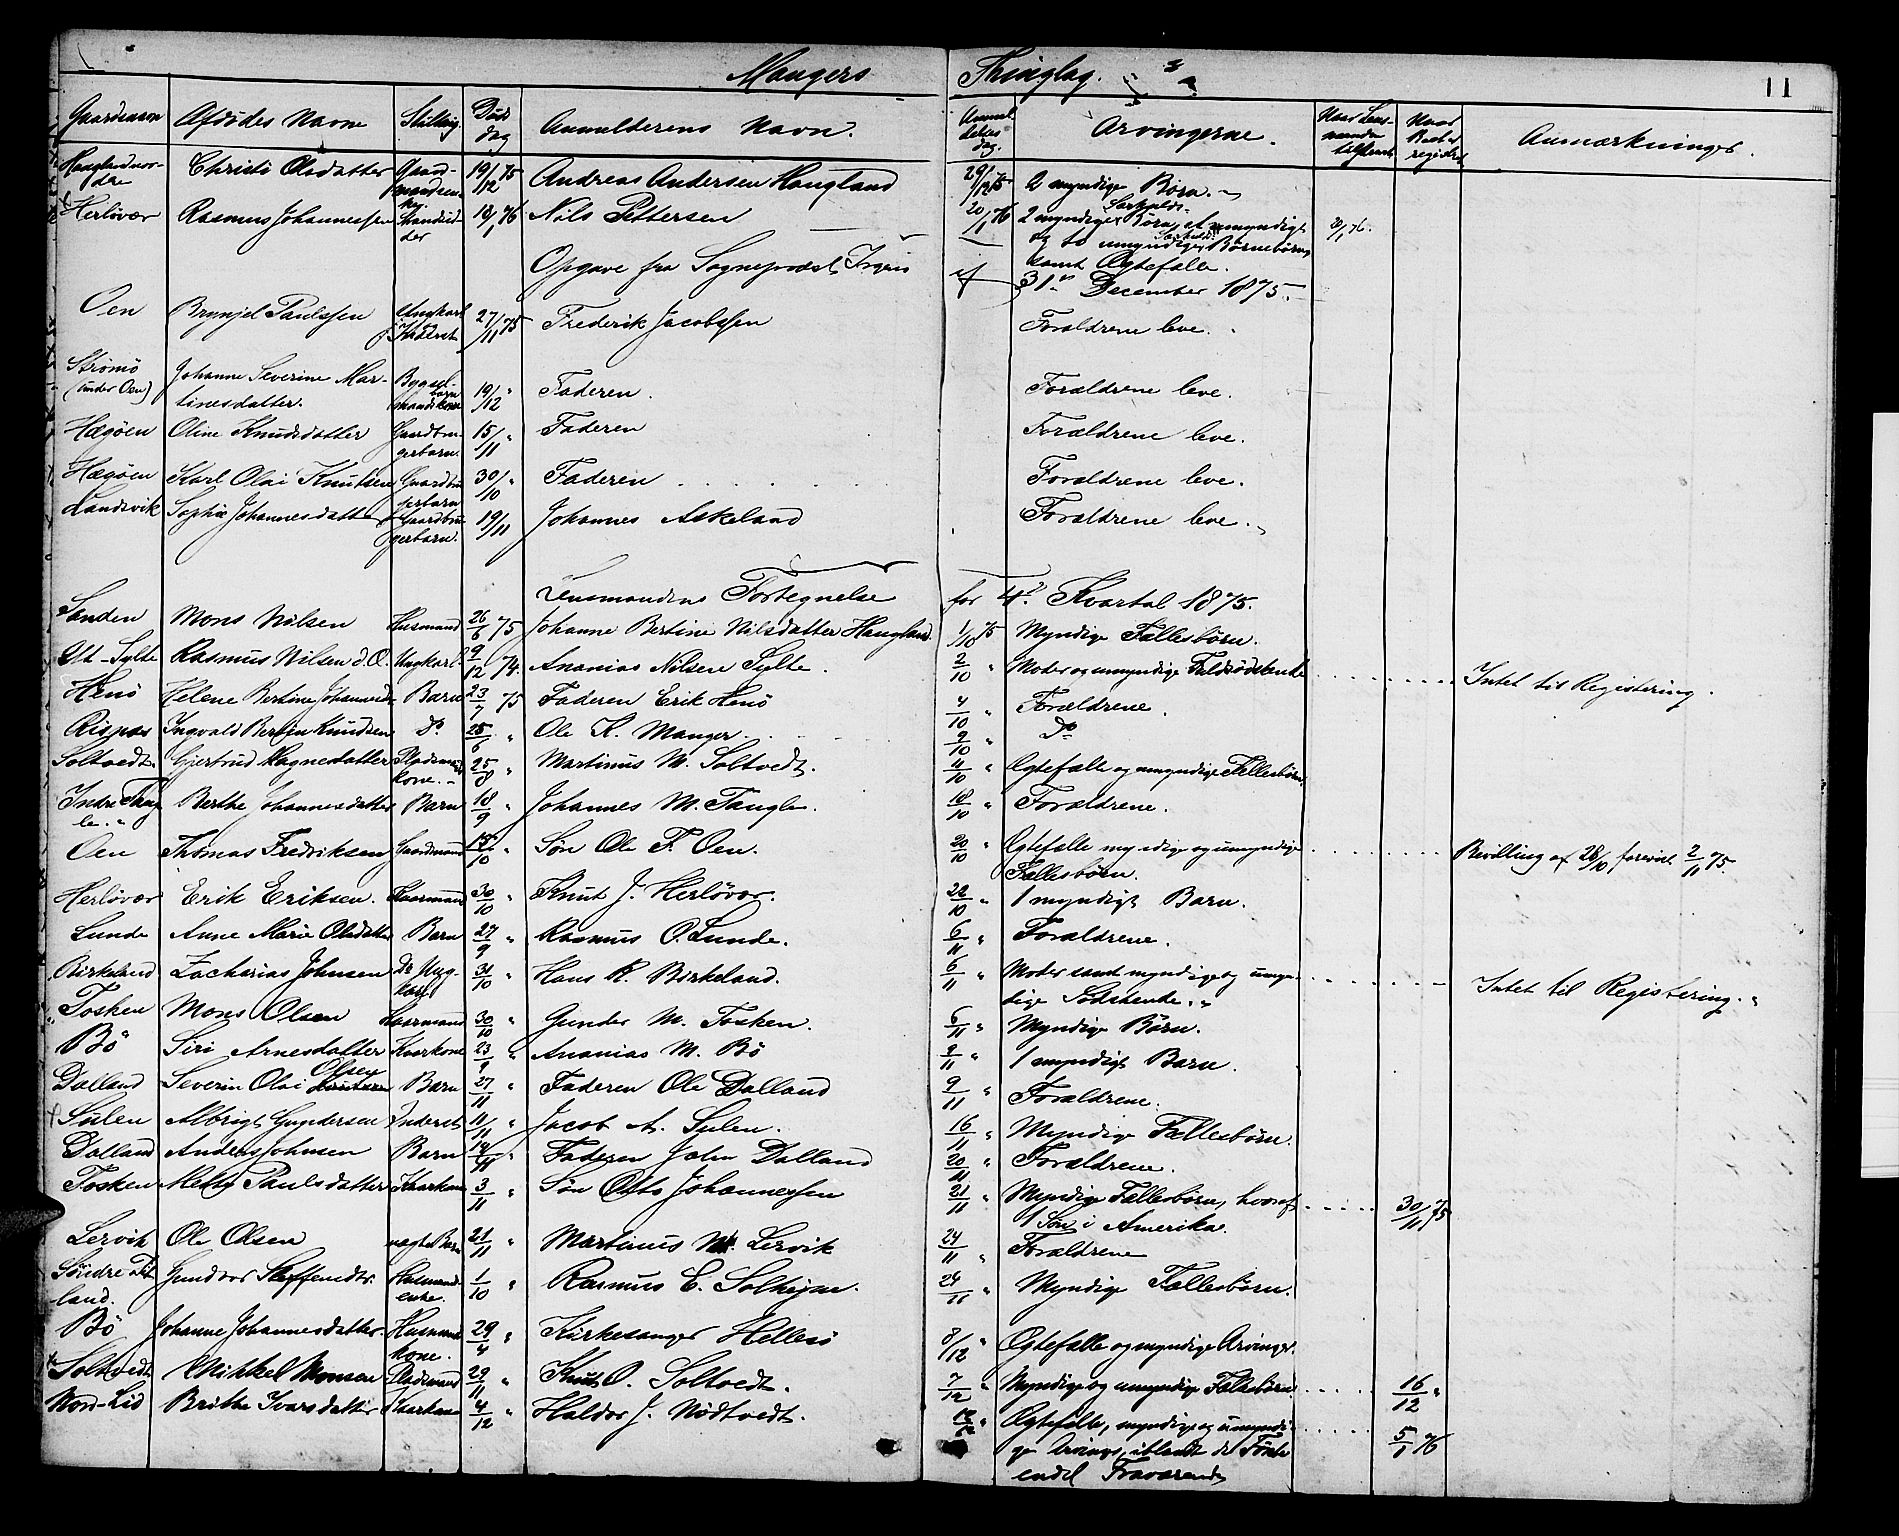 Mangers Thinglag.
11
Gaardenavn Afdødes Navn Stilling Døds dag Anmelderens Navn. Anmeldelses dag. Arvingerne. Naar Lensmanden tilskrevet Naar Boet er registret Anmærkninger.
Hauglandnordre Christi Olsdatter 19/12 75 Andreas Andersen Haugland 29/12 75 2 myndige Børn.
Herløvær Rasmus Johannessen Strandsidder 19/1 76 Nils Pettersen 20/1 76 2 myndige Særkulds- Børn, et umyndigt 20/1 76.
og to umyndige Særkulds Børnebørn
samt Ægtefælle.
Opgave fra Sogneprest Irgens af 31te December 1875.
Oen Brynjel Paulssen Ungkarl Inderst 27/11 75 Frederik Jacobssen Forældrene leve.
Strømø (under Oen) Johanne Severine Martinesdatter. 19/12 " Faderen. Forældrene leve.
Hægøen Oline Knudsdatter Gaardbrugerbarn. 15/11 " Faderen Forældrene leve.
Hægøen Karl Olai Knutsen Gaardbrugerbarn 30/10 " Faderen Forældrene leve.
Landsvik Sophie Johannesdatter Gaardbrugerbarn. 19/11 Johannes Askeland Forældrene leve.
Lensmandens Fortegnelse for 4de Kvartal 1875.
Sanden Mons Nilsen Husmand 26/6 75 Johanne Bertine Nilsdatter Haugland. 1/10 75 Myndige Fællesbørn.
Yt-Sylte Rasmus Nilsen d.Æ. Ungkarl 9/12 74. Ananias Nilsen Sylte. 2/10 " Moder og umyndige Fuldsødskende Intet til Registering.
Henø Helene Bertine Johannesd. Barn 23/7 75 Faderen Erik Henø 4/10 " Forældrene.
Risnæs Ingvald Bertin Knudsen Do 25/6 " Ole K. Manger. 9/10 " Do
Soltvedt. Gjertrud Magnesdatter Pladsmandskone. 25/8 " Martinus M. Soltvedt. 4/10 " Ægtefælle og umyndige Fællesbørn.
Indre Tangle. Berthe Johannesdatter Barn 18/9 " Johannes M. Tangle. 18/10 " Forældrene.
Oen Thomas Fredriksen Gaardmand 15/10 " Søn Ole T. Oen. 20/10 " Ægtefælle myndige og umyndige Bevilling af 28/10 forevist 2/11 75.
Fællesbørn.
Herløvær Erik Eriksen. Kaarmand 30/10 " Knut J. Herløvær. 28/10 " 1 myndigt Barn.
Lunde Anne Marie Olsdatter Barn 27/9 " Rasmus O. Lunde. 6/11 " Forældrene.
Birkeland Zacharias Johnsen Do Ungkarl 31/10 " Hans R. Birkeland. 6/11 " Moder samt myndige og umyndige Sødskende. " Intet til Registering. "
Tosken Mons Olsen Kaarmand 30/10 " Gunder M. Tosken. 6/11 " Myndige Børn.
Bö Siri Arnesdatter Kaarkone 23/9 " Ananias M. Bö 9/11 " 1 myndigt Barn.
Dalland Severin Olai Olsen Barn 27/11 " Faderen Ole Dalland 9/11 " Forældrene.
Sülen Albrigt Gundersen Inderst 11/11 " Jacob A. Sulen. 16/11 " Myndige Fællesbørn.
Dalland Anders Johnsen Barn 14/11 " Faderen John Dalland 20/11 " Forældrene.
Tosken Mette Paulsdatter Kaarkone 3/11 " Søn Otto Johannessen 21/11 " Myndige Fællesbørn, hvoraf 30/11 75
1 Søn i Amerika.
Lervik Ole Olsen uægte Barn 21/11 " Martinus M. Lervik 24/11 " Forældrene
Søndre Titland. Gundvor Steffensdtr. Husmandsenke. 1/10 " Rasmus E. Solheim. 24/11 " Myndige Fællesbørn.
Bö Johanne Johannesdatter. Husmandskone. 29/4 " Kirkesanger Hellesö 8/12 " Ægtefælle og myndige Arvinger.
Soltvedt Mikkel Monsen Pladsmand 29/11 " Knut O. Soltvedt. 7/12 " Myndige og umyndige Fællesbørn 16/12 "
Nord-Lid Brithe Ivarsdatter Kaarkone 4/12 " Haldor J. Nødtvedt. Ægtefælle, myndige og umyndige Arvinger, iblandt de Første 5/1 76
endel Fraværende